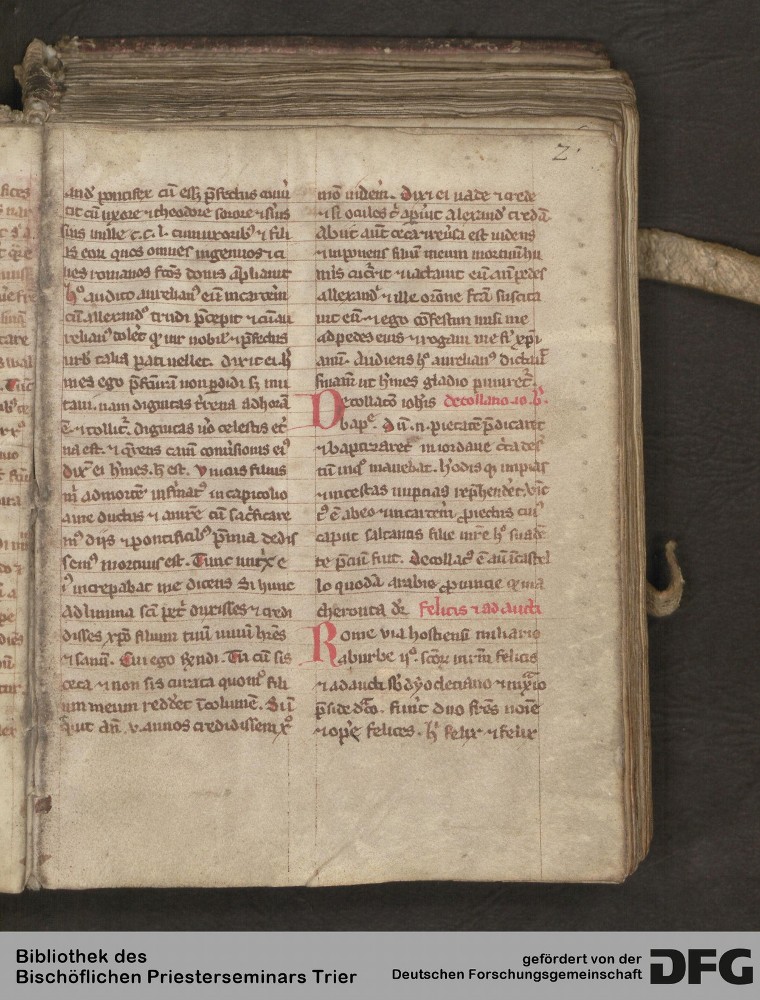 2.
and' pontifex cū ess& p̄fectus
tit cū uxore & theodore sorore & filiis
suis mille .c.c.l. cum uxorib' & fili
is eor quos omnes ingenuos & ci
ues romanos fctōs donis ampliauit
hº audito aurelian' eū in carcerē
cū allexand' trudi p̄cepit
relian' q' uir nobil' & p̄fectus
urb talia pati uellet. dixit ei h'
mes ego p̄fcturam non p̄didi s; mu
taui. nam dignitas t'rena ad horam
ē & tollit'. dignitas u'o celestis et'
na est. & q'rens cām conu'sionis ei'
Dix' ei h'mes. h' est. Vnicus filius
m' ad mortē infirmat' in capitolio
ante ductus & cū sac'ficare
m' diis & pontificib' p̄mia dedis
sem' mortuus est. Tunc nut'x e
i' increpabat me dicens Si hunc
ad limina sc̄i pet' duxisses & credi
disses xp̄o filium tuū uiuū h'res
& sanū. Cui ego r̄ndi. Tu cū sis
ceca & non sis curata quom' fili
um meum redd'et īcolumē.
ān .v. annos credidissem x̄º
mō uidem. Dixi ei uade & crede
& si oculos t' ap'uit alexand' credā
Abiit aut' ceca & reu'sa est uidens
& inponens filium meum mortuū hu
m'is cuc'rit & iactauit eū an' pedes
allexand' & ille or'one fctā suscita
uit eū & ego confestim misi me
ad pedes eius & rogaui me fi' xp̄i
anū. Audiens hº aurelian' dictauit
s'niam ut h'mes gladio puniret'.
Decollatō ioh'is decollatio .io.b'.
bap'. Dū .n. pietatē p̄dicaret
& baptizaret' in iordane c'ca des'
tū inq' manebat. h'odis q' impias
& incestas nuptias rep'hend'et. uic
t' ē ab eo & in carcerē proiectus cui'
caput saltantis filie m're h' suadē
te p̄ciū fuit. Decollat' ē aū ī castel
lo quodā arabie prouincie q' ma
cheronta dr̄. Felicis & adaucti
Rome uia hostiensi miliario
ab urbe .ii. sc̄or m̄rm felicis
& adaucti sb' dyocletiano & maxīo
p̄side d'co. Fuer̄t duo fr̄es noīe
& op'e felices. h' felix & felix
Bibliothek des
Bischöflichen Priesterseminars Trier
gefördert von der
Deutschen Forschungsgemeinschaft
DFG